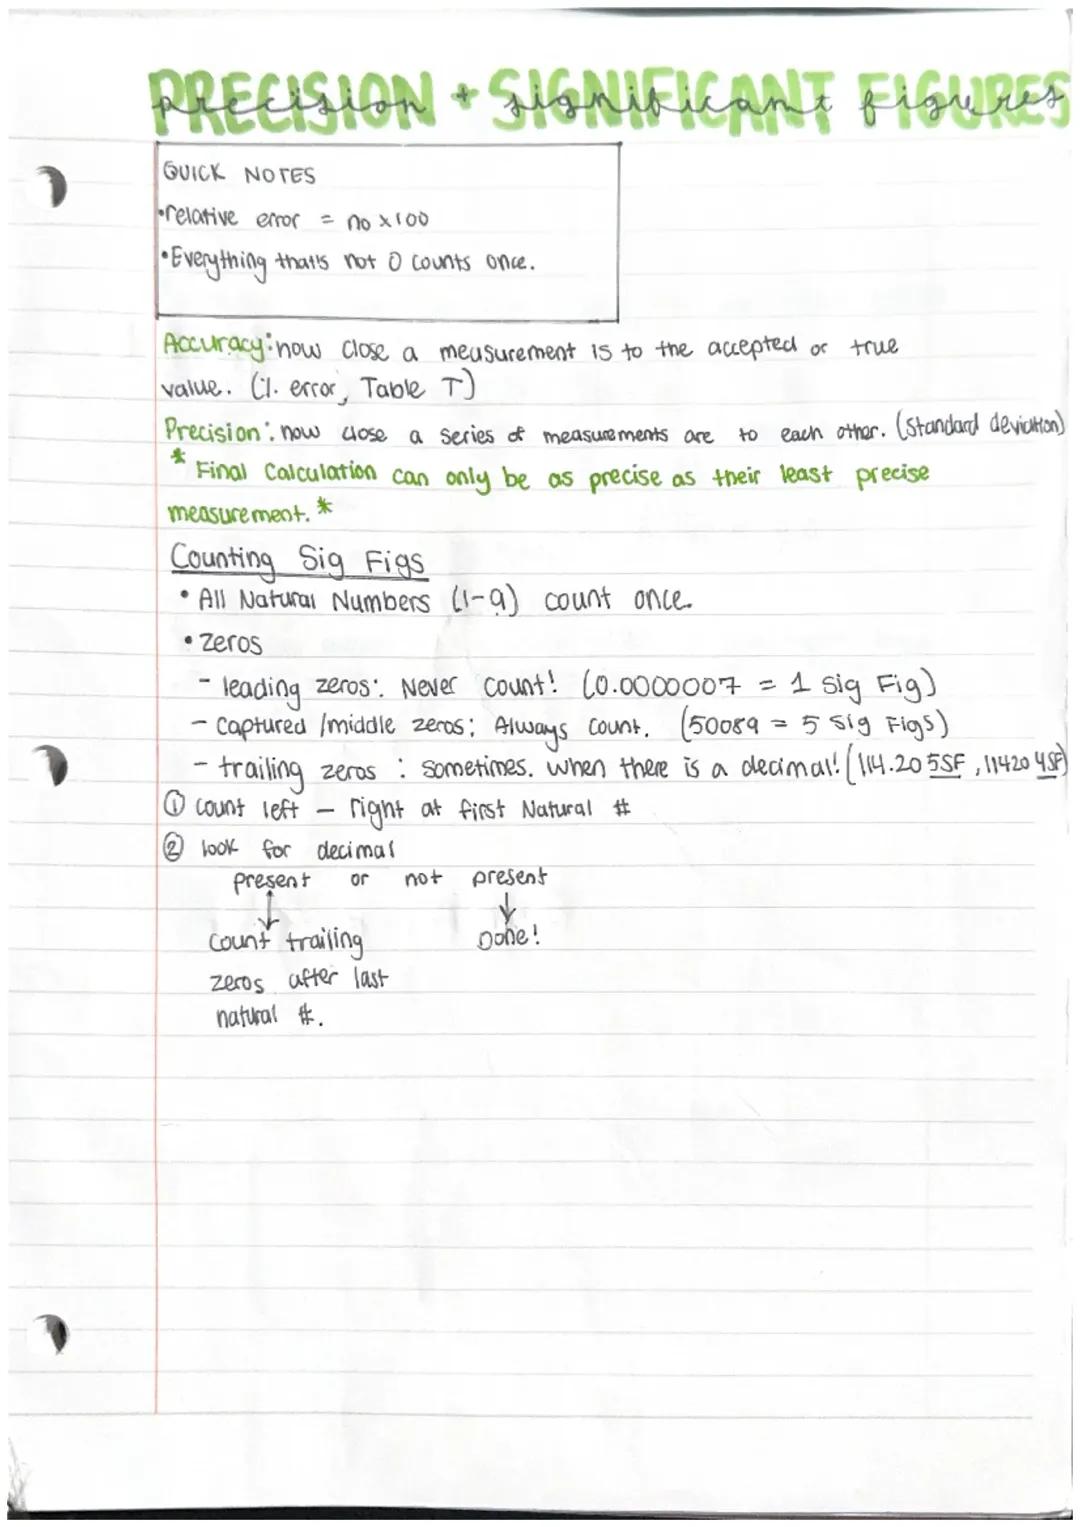 PRECISION + SIGNIFICANT FIGURES
precision + significant figures
QUICK NOTES
•relative error = no x100
•Everything that's not 0 counts once.
Accuracy: how close a measurement is to the accepted or true
value. (% error, Table T)
Precision: how close a series of measurements are to each other. (Standard deviation)
* Final Calculation can only be as precise as their least precise
measurement. *
Counting Sig Figs
• All Natural Numbers (1-9) count once.
• zeros
- leading zeros: Never count! (0.0000007 = 1 Sig Fig)
- captured /middle zeros: Always count. (50089 = 5 sig Figs)
- trailing zeros : sometimes. when there is a decimal! (114.20 5SF, 11420 4SF)
① count left - right at first Natural #
② look for decimal
present or not present
count trailing Done!
zeros after last
natural #.